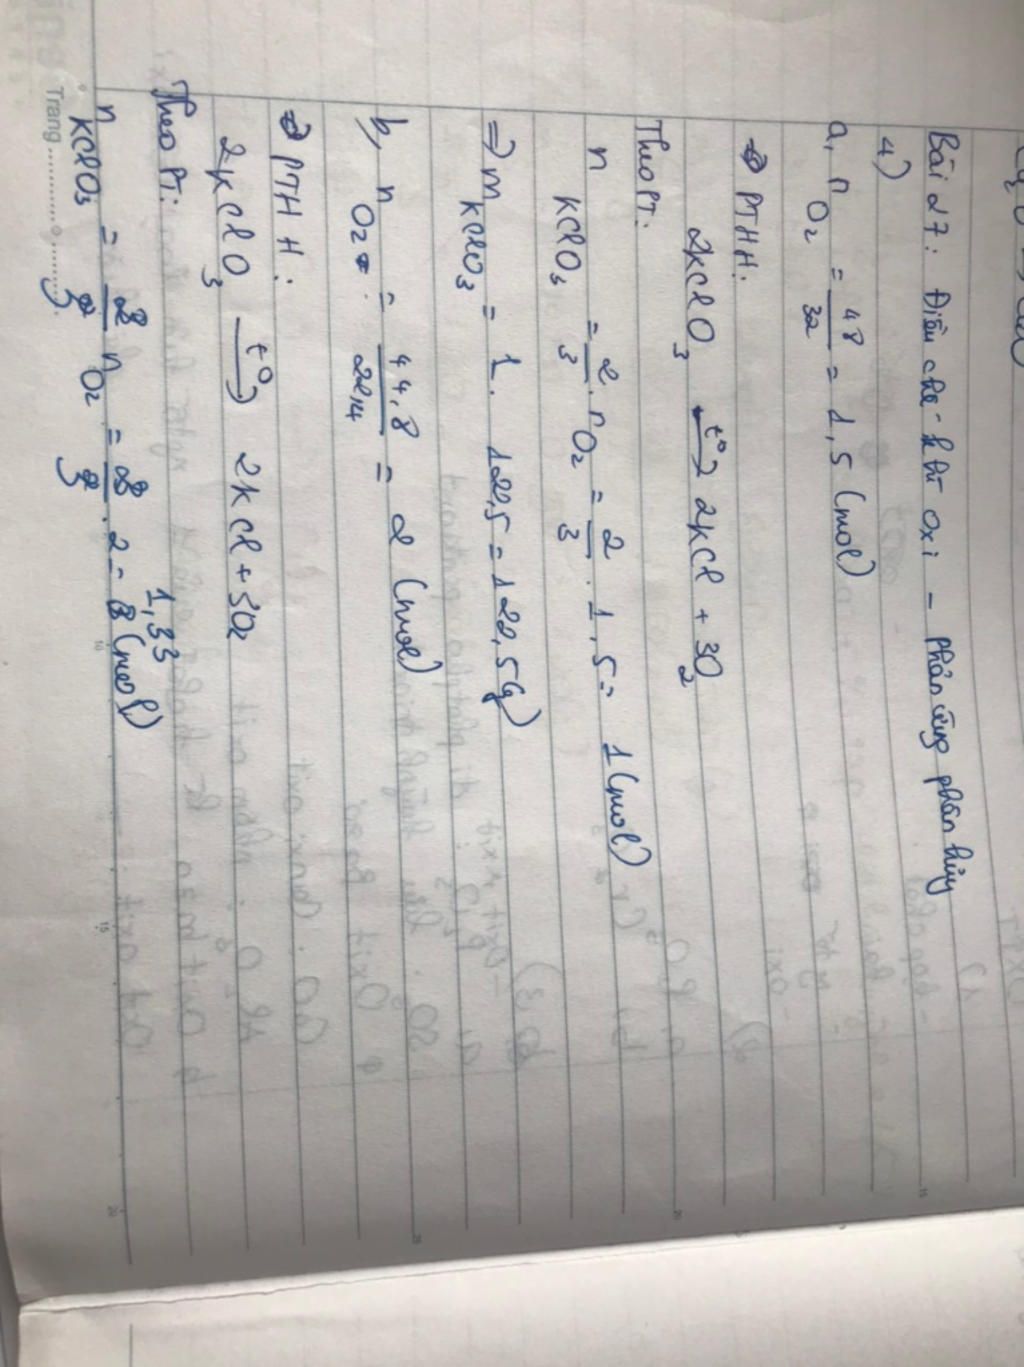 Bài 27: Điều chế khí oxi - phản ứng phân hủy
4)
a, n O2 = 48/32 = 1,5 (mol)
=> PTHH:
2KClO3 t°→ 2KCl + 3O2
Theo PT:
n KClO3 = 2/3 . n O2 = 2/3 . 1,5 = 1 (mol)
=> m KClO3 = 1 . 122,5 = 122,5 (g)
b, n O2 = 44,8/22,4 = 2 (mol)
=> PTHH:
2KClO3 t°→ 2KCl + 3O2
Theo PT:
n KClO3 = 2/3 n O2 = 2/3 . 2 = 1,33 (mol)
Trang